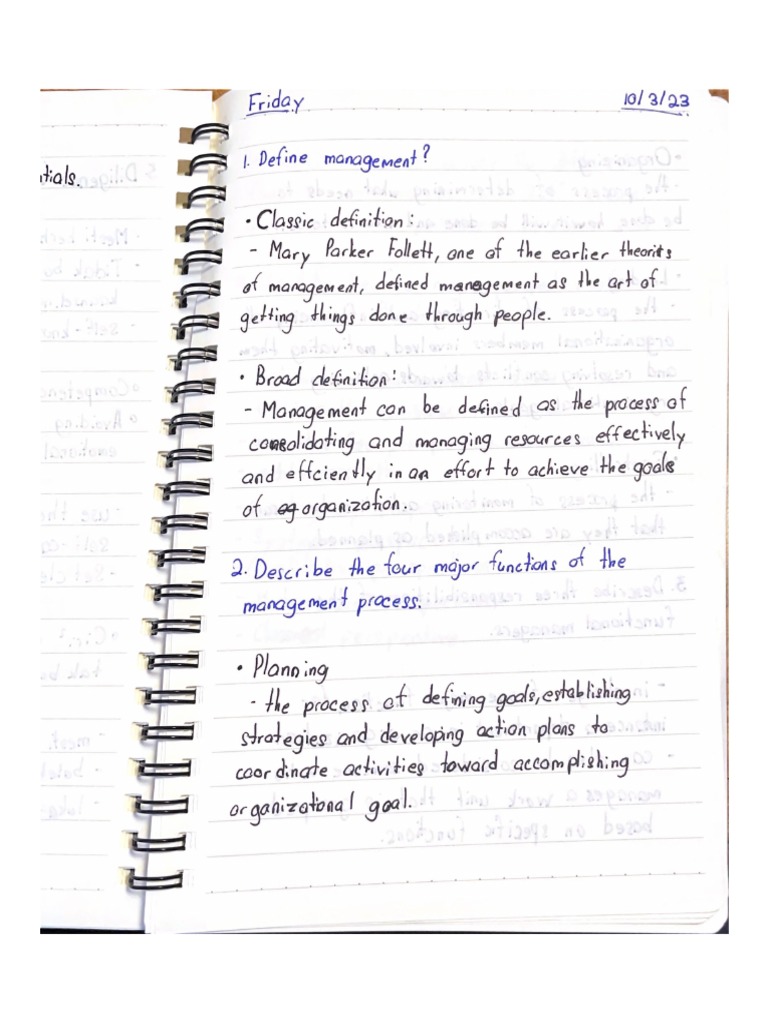 tials.
Friday 10/3/23
1. Define management?
• Classic definition:
- Mary Parker Follett, one of the earlier theorits
of management, defined management as the art of
getting things done through people.
• Broad definition:
- Management can be defined as the process of
consolidating and managing resources effectively
and effciently in an effort to achieve the goals
of organization.
2. Describe the four major functions of the
management process.
• Planning
- the process of defining goals, establishing
strategies and developing action plans to
coordinate activities toward accomplishing
organizational goal.